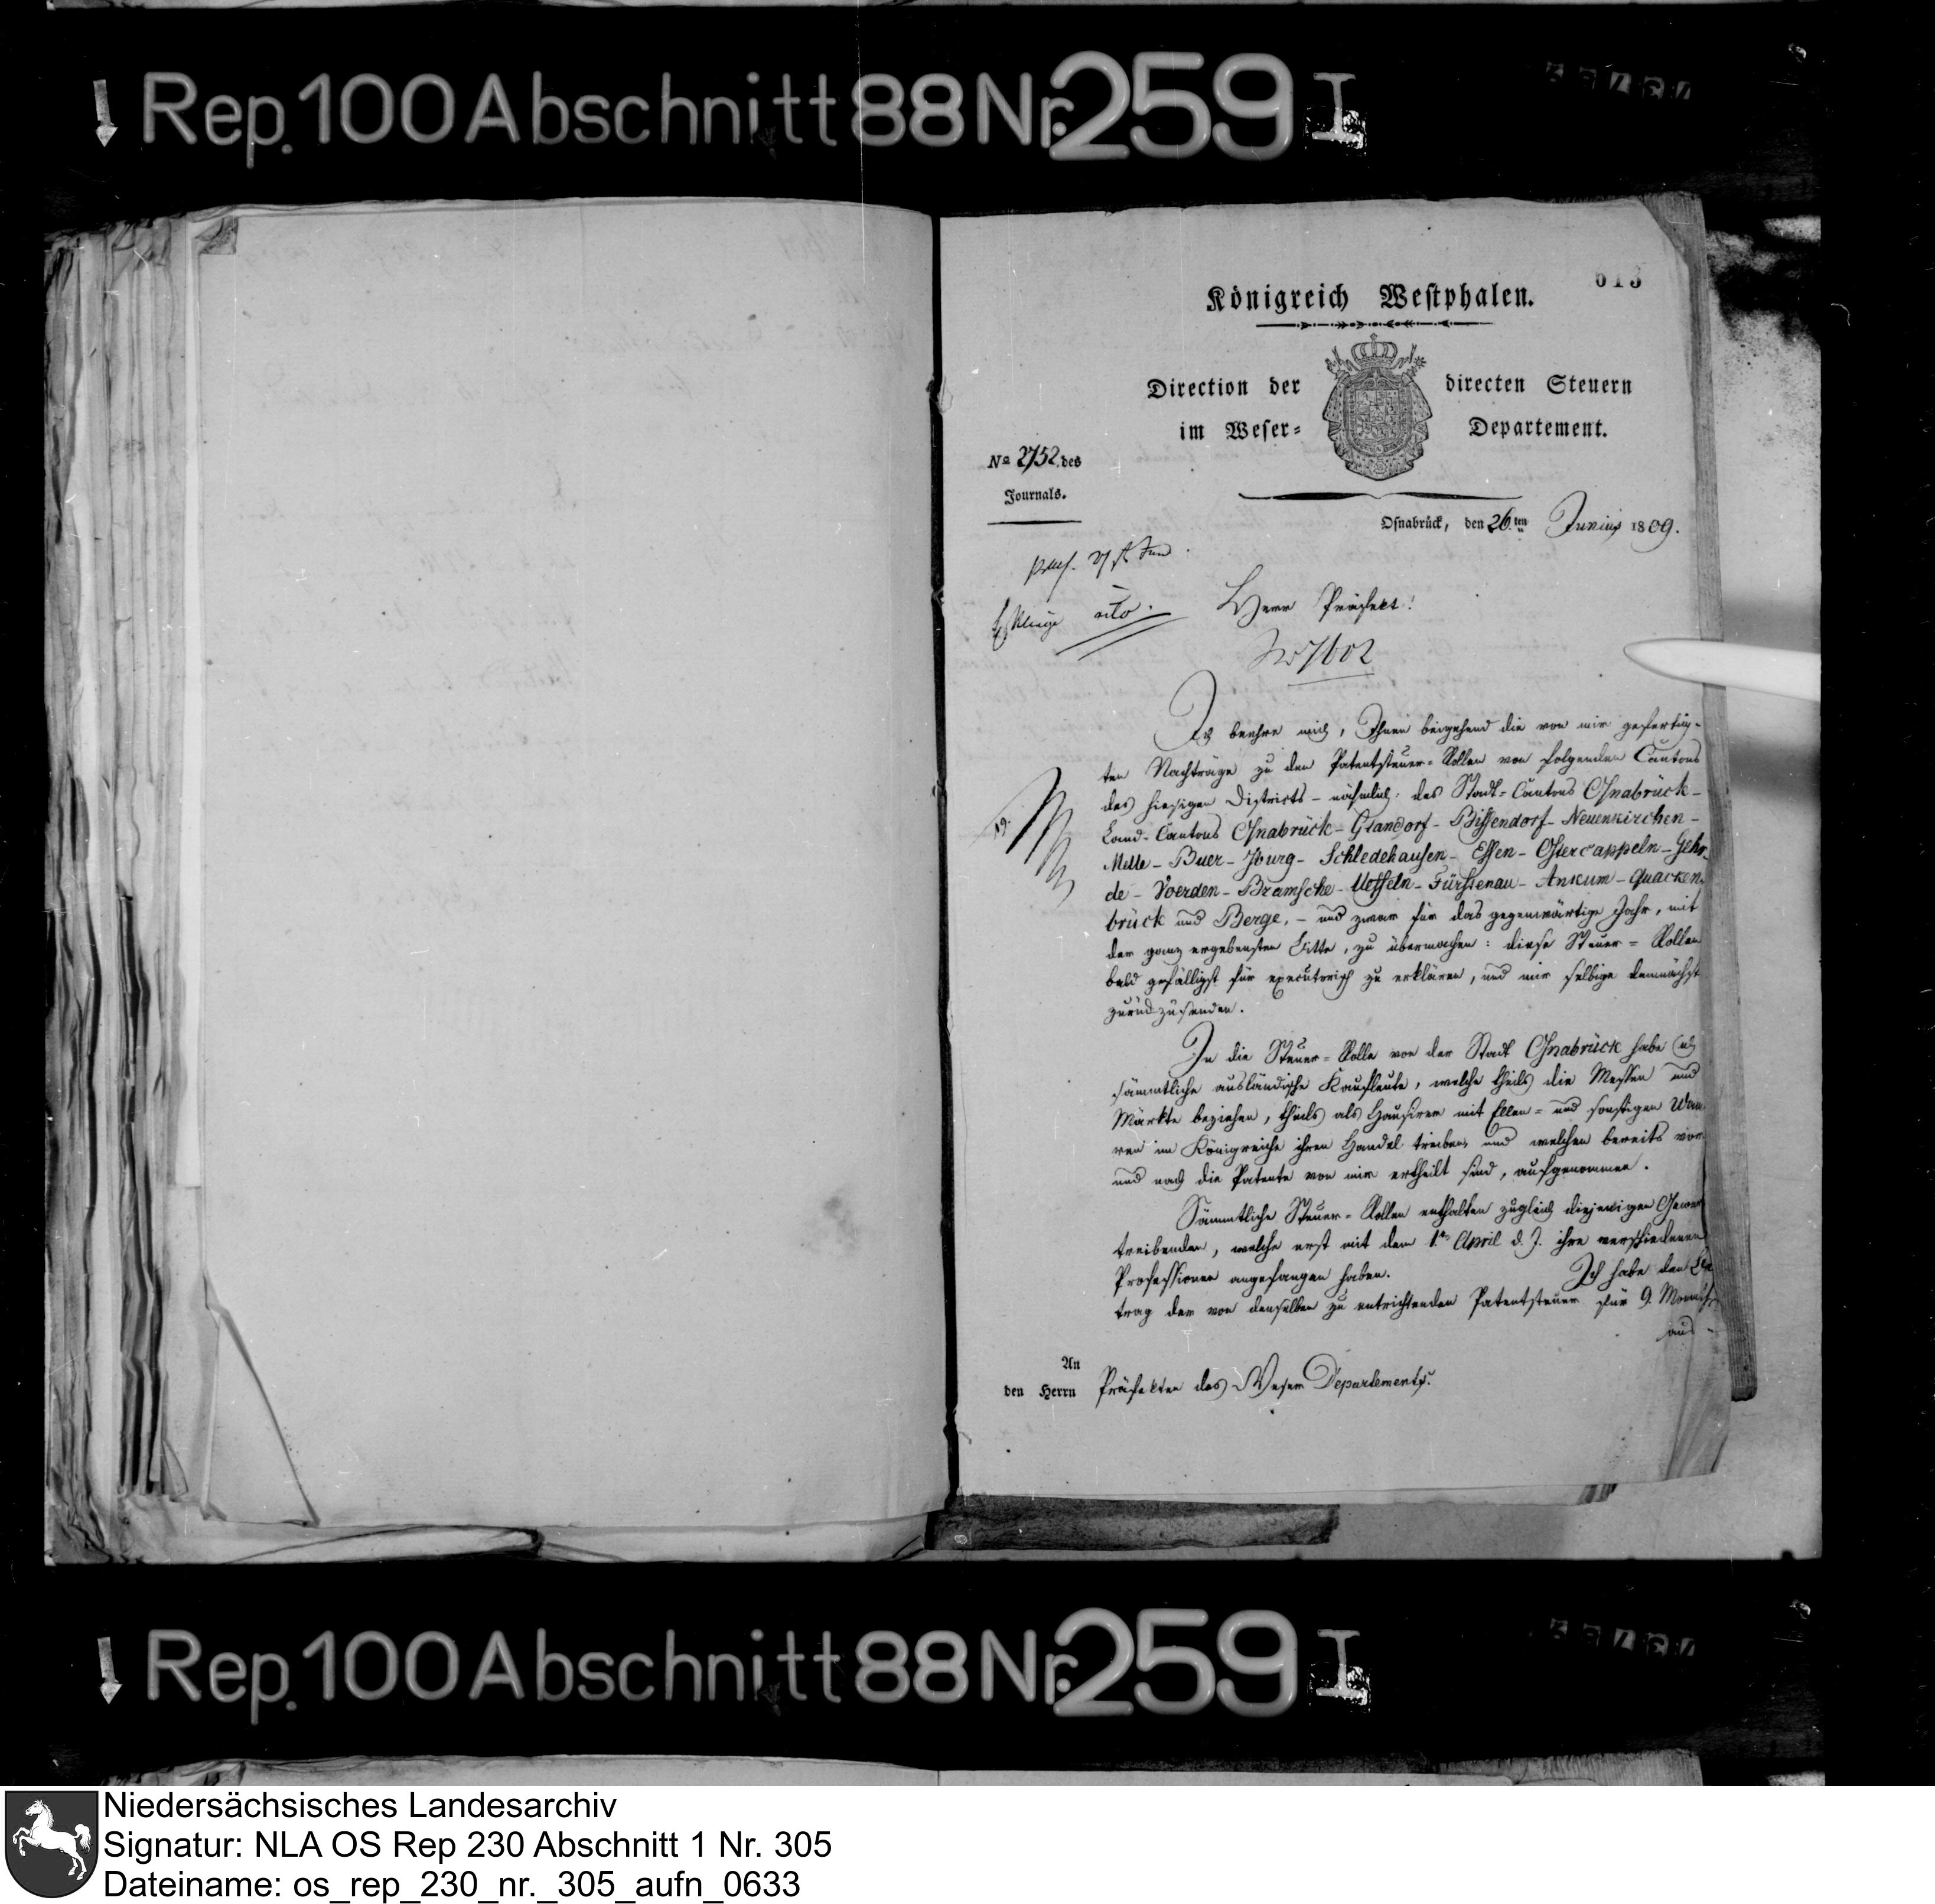 Rep. 100 Abschnitt 88 Nr. 259 I
613
Königreich Westphalen.
Direction der directen Steuern
im Weser= Departement.
No 2752. des
Journals.
Osnabrück, den 26.ten Junius 1809.
cito.
Herr Präfekt!
No 7602
Ich beehre mich, Ihnen beigehend die von mir gefertig-
ten Nachträge zu den Patentsteuer=Rollen von folgenden Cantons
des hiesigen Districts – nähmlich: des Stadt=Cantons Osnabrück –
19.
Land-Cantons Osnabrück – Glandorf – Bissendorf – Neuenkirchen –
Melle – Buer – Iburg – Schledehausen – Essen – Ostercappeln – Gehr-
de – Voerden – Bramsche – Ueffeln – Fürstenau – Ankum – Quacken-
brück und Berge, – und zwar für das gegenwärtige Jahr, mit
der ganz ergebensten Bitte, zu übermachen: diese Steuer=Rollen
bald gefälligst für executorisch zu erklären, und mir selbige demnächst
zurückzusenden.
In die Steuer=Rolle von der Stadt Osnabrück habe ich
sämmtliche ausländische Kaufleute, welche theils die Messen und
Märkte beziehen, theils als Hausirer mit Ellen= und sonstigen Waa-
ren im Königreiche ihren Handel treiben, und welchen bereits vor
und nach die Patente von mir ertheilt sind, aufgenommen.
Sämmtliche Steuer=Rollen enthalten zugleich diejenigen Gewerb
treibenden, welche erst mit dem 1ten April d. J. ihre verschiedenen
Professionen angefangen haben. Ich habe den Be
trag der von denselben zu entrichtenden Patentsteuer für 9. Monathe
aus-
An
den Herrn Präfekten des Weser Departements.
Rep. 100 Abschnitt 88 Nr. 259 I
Niedersächsisches Landesarchiv
Signatur: NLA OS Rep 230 Abschnitt 1 Nr. 305
Dateiname: os_rep_230_nr._305_aufn_0633